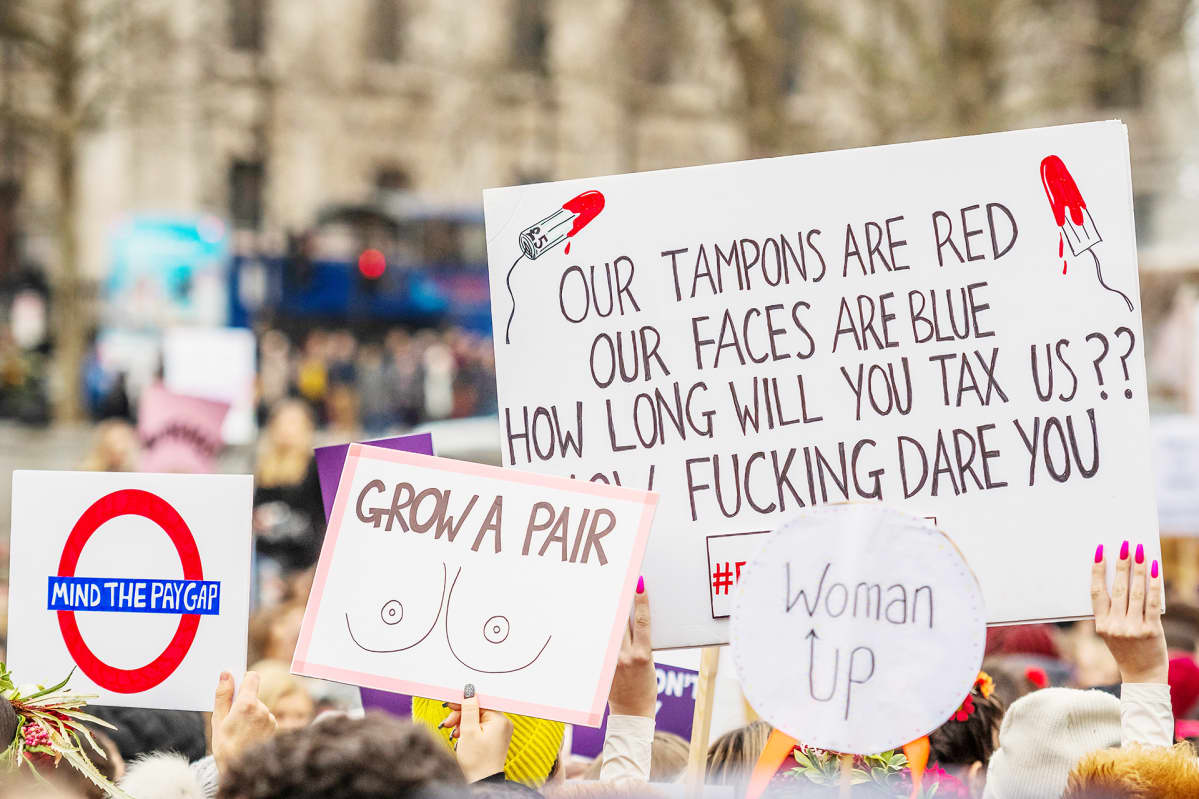 £5
OUR TAMPONS ARE RED
OUR FACES ARE BLUE
HOW LONG WILL YOU TAX US??
FUCKING DARE YOU
MIND THE PAY GAP
GROW A PAIR
Woman
Up